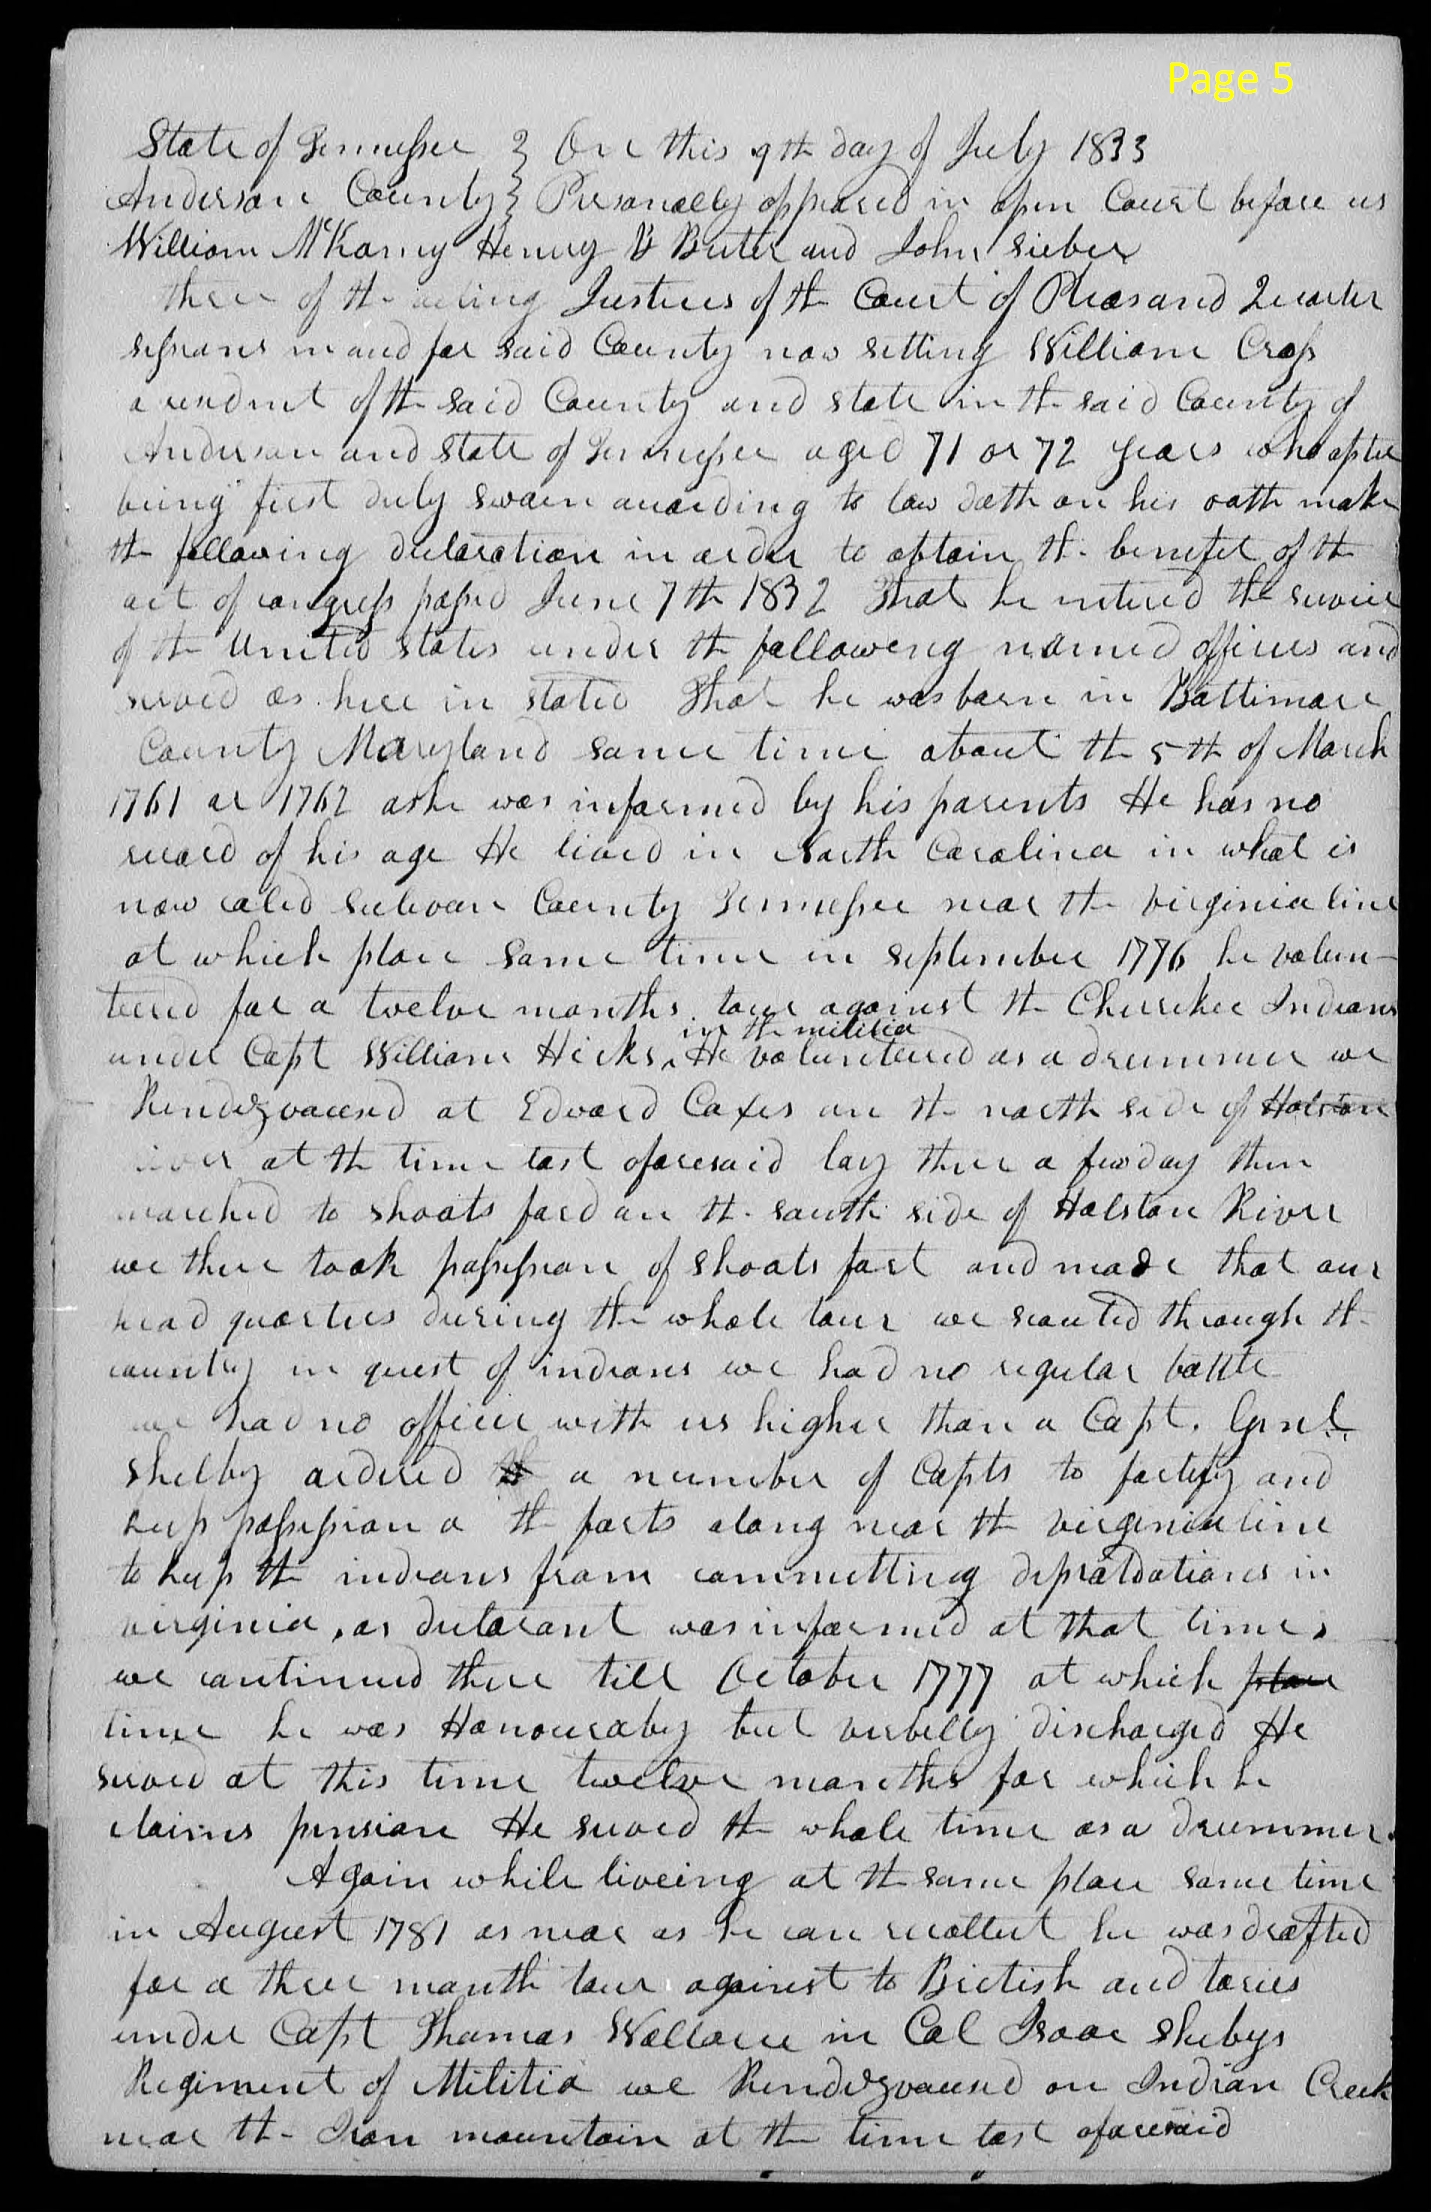 Page 5
State of Tennessee } On this 9th day of July 1833
Anderson County } Personally appeared in open Court before us
William McKamy Henry B Buter and John Sieber
three of the acting Justices of the Court of Pleas and Quarter
sessions in and for said County now setting William Cross
a resedent of the said County and state in the said County of
Anderson and State of Tennessee aged 71 or 72 years who after
being first duly sworn according to law doth on his oath make
the following decleration in order to obtain the benefit of the
act of congress passed June 7th 1832 That he entered the service
of the United States under the following named officers and
served as here in stated That he was born in Baltimore
County Maryland some time about the 5th of March
1761 or 1762 as he was informed by his parents He has no
record of his age He lived in North Carolina in what is
now caled Sulivan County Tennessee near the virginia line
at which place some time in september 1776 he volun-
teered for a twelve months tour against the Cherokee Indians
in the militia
under Capt William Hicks ^ He volunteered as a drummer we
Rendezvoused at Edward Coxes on the north side of Holston
river at the time last aforesaid lay there a few day then
marched to Shoats ford on the south side of Holston River
we there took possession of Shoats fort and made that our
head quarters during the whole tour we scouted through the
country in quest of indians we had no regular battle
we had no officer with us higher than a Capt. Genl.
Shelby ordered a number of Capts to fortify and
keep possession o the forts along near the virginia line
to keep the indians from committing depradations in
virginia, as declarant was informed at that time,
we continued there till October 1777 at which place
time he was Honouraby but verbelly discharged He
served at this time twelve months for which he
claims pension He served the whole time as a drummer.
Again while liveing at the same place some time
in August 1781 as near as he can recollect he was drafted
for a three month tour against to British and tories
under Capt Thomas Wallace in Col Isaac Shelbys
Regiment of Militia we Rendezvoused on Indian Creek
near the Iron mountain at the time last aforesaid